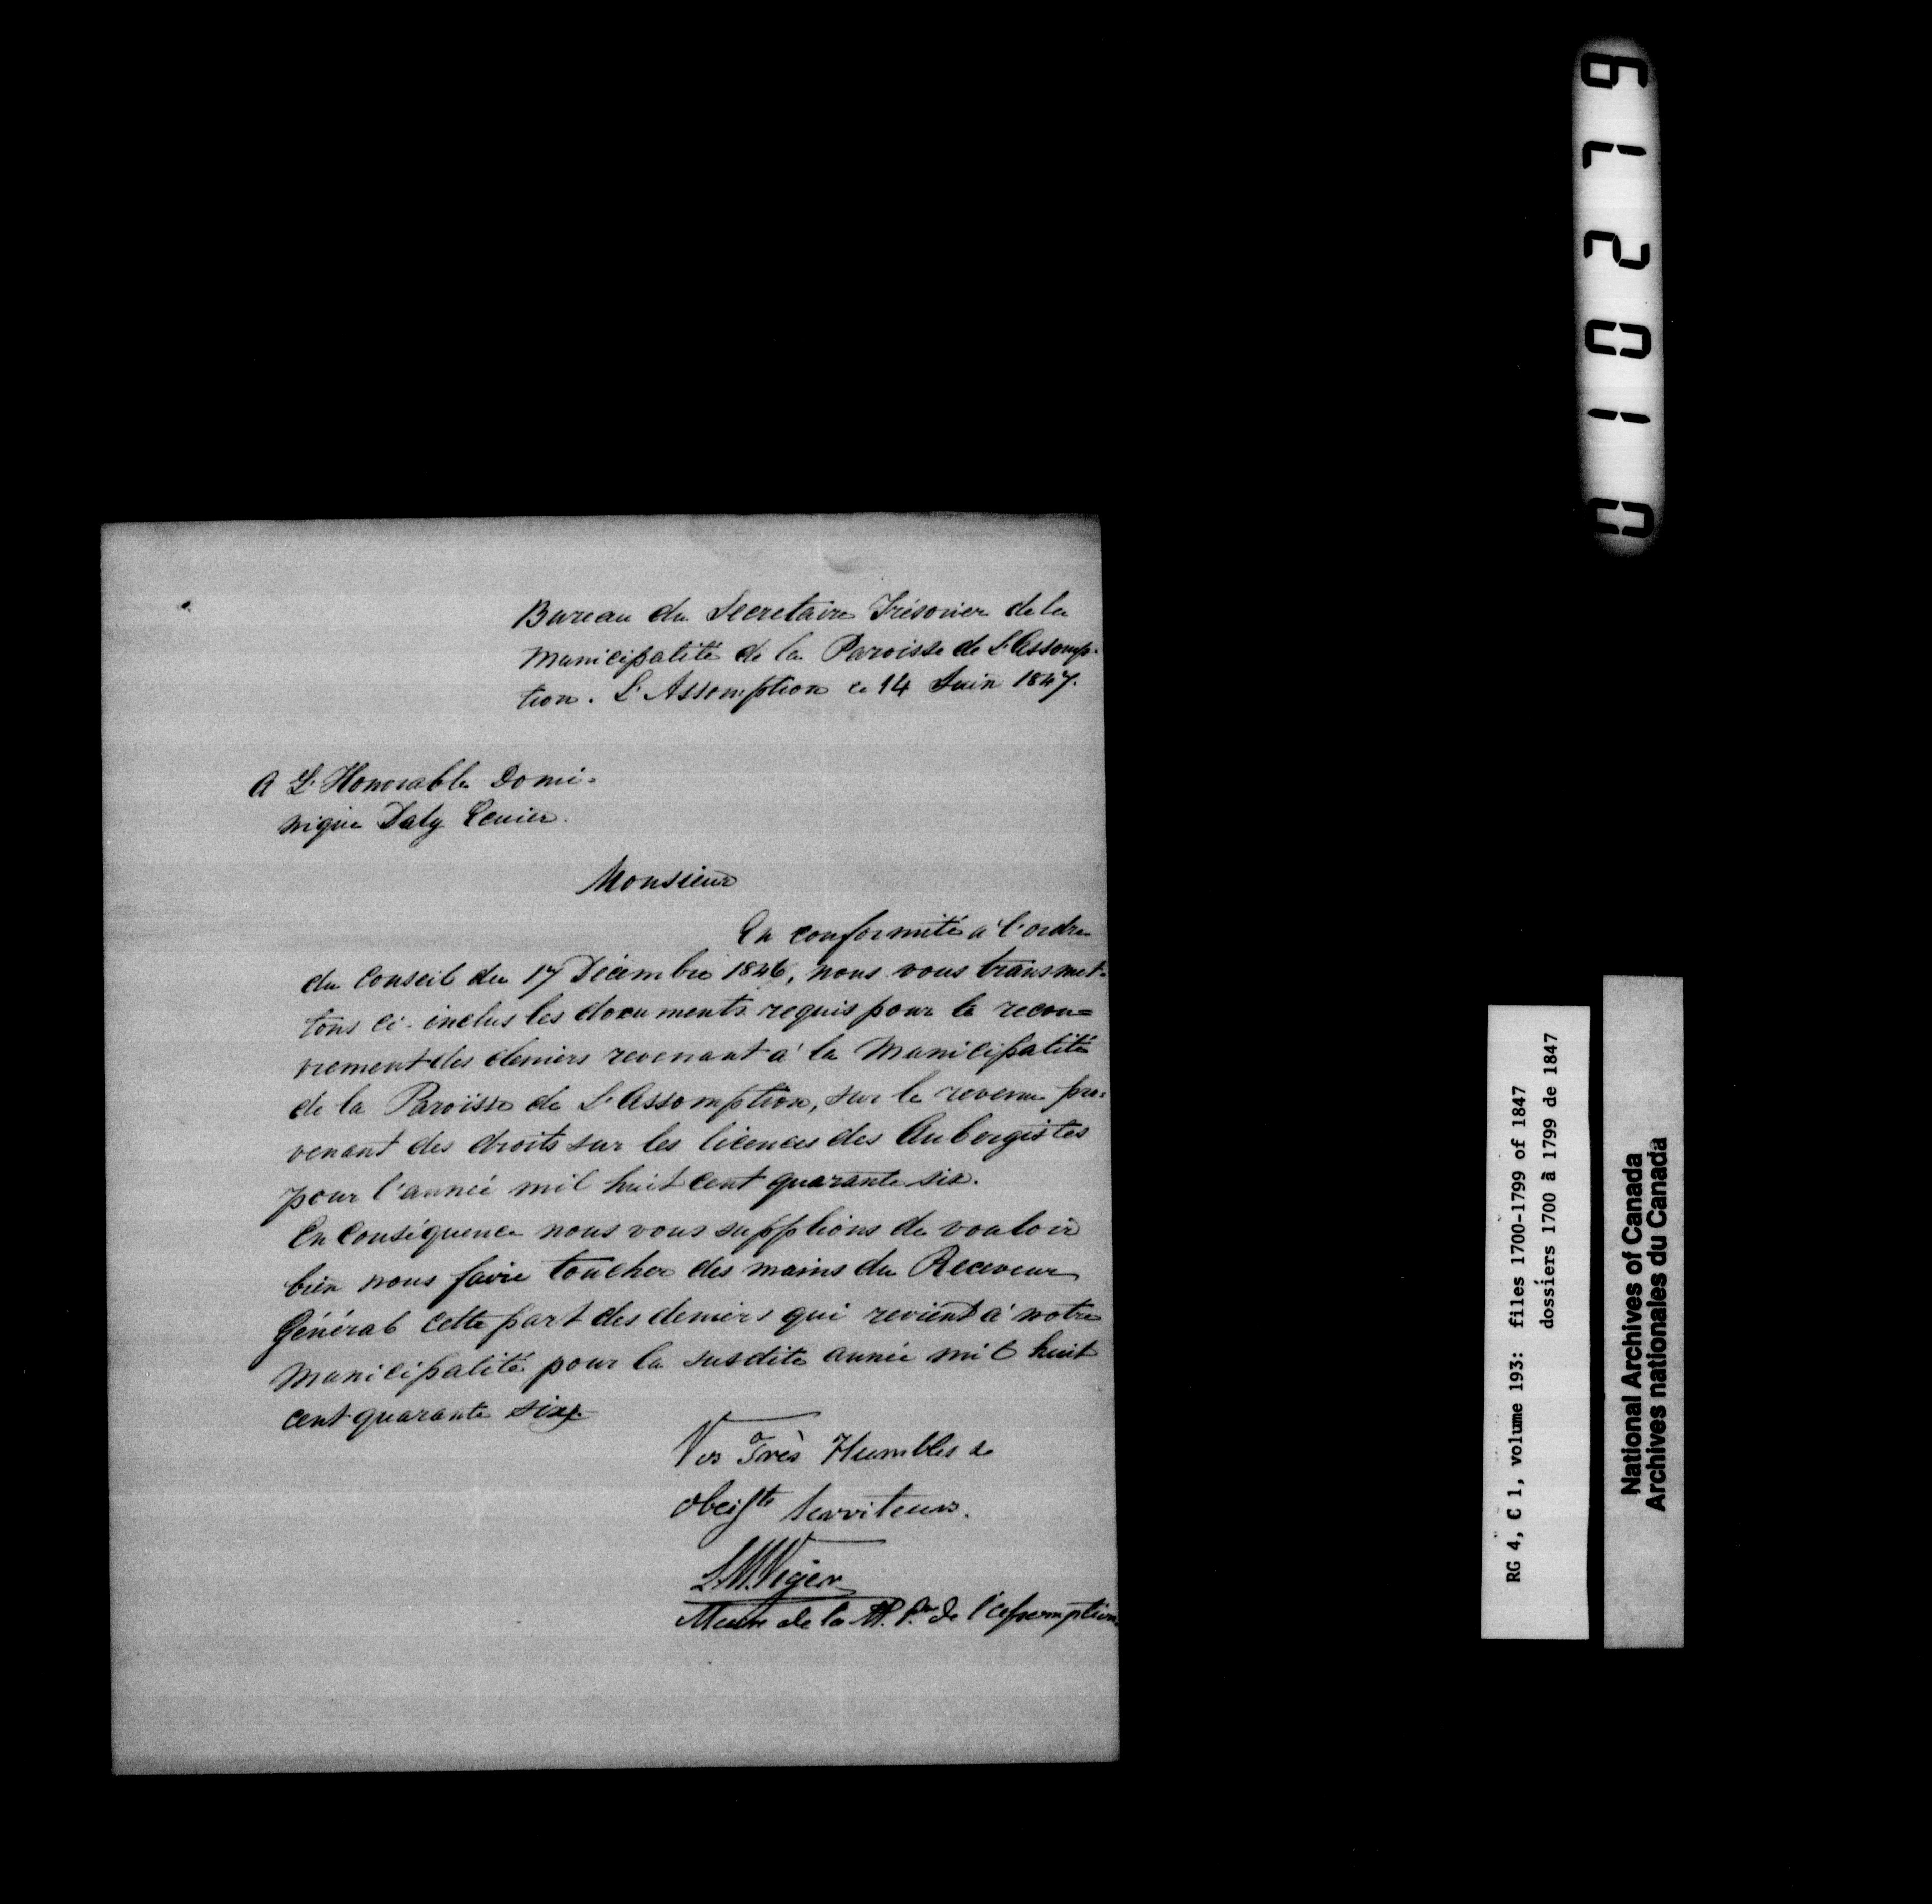 Bureau du Secretaire Trésorier de la
Municipalité de la Paroisse de L'Assomp-
tion. L'Assomption ce 14 Juin 1847.
A L'Honorable Domi-
nique Daly Ecuier.
Monsieur
En conformité à l'ordre
du Conseil du 17 Décembre 1846, nous vous transmet-
tons ci-inclus les documents requis pour le recou=
vrement des deniers revenant à la Municipalité
de la Paroisse de L'Assomption, sur le revenu pro=
venant des droits sur les licences des Aubergistes
pour l'année mil huit cent quarante six.
En Conséquence nous vous supplions de vouloir
bien nous faire toucher des mains du Receveur
Général cette part des deniers qui revient à notre
Municipalité pour la susdite année mil huit
cent quarante six.
Vos Très Humbles &
obeisste Serviteurs.
L.M. Viger
Maire de la M. Psse de l'assomption
671020
RG 4, C 1, volume 193: files 1700-1799 of 1847
dossiers 1700 à 1799 de 1847
National Archives of Canada
Archives nationales du Canada